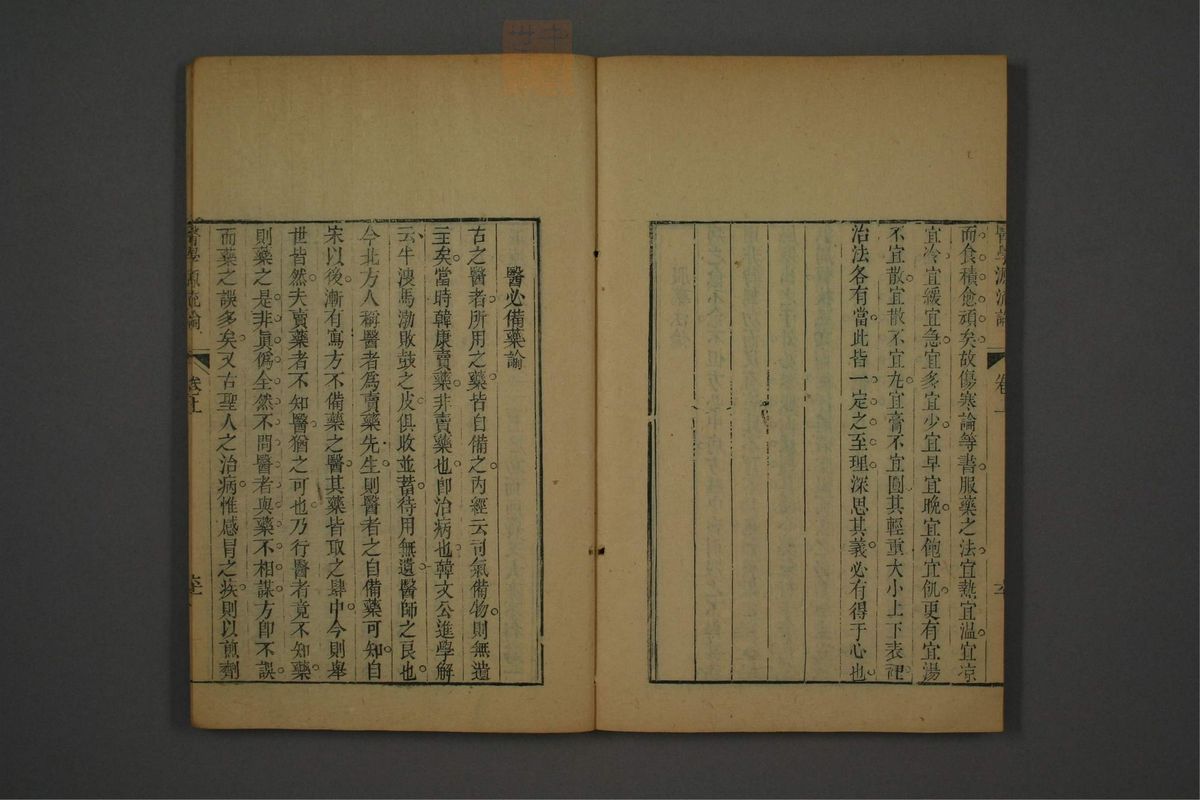 醫學源流論
卷上
而食積愈頑矣故傷寒論等書服藥之法宜熱宜温宜凉
宜冷宜緩宜急宜多宜少宜早宜晚宜飽宜飢更有宜湯
不宜散宜散不宜丸宜膏不宜圓其輕重大小上下表裡
治法各有當此皆一定之至理深思其義必有得于心也
醫必備藥論
古之醫者所用之藥皆自備之內經云司氣備物則無遺
主矣當時韓康賣藥非賣藥也卽治病也韓文公進學解
云牛溲馬渤敗鼓之皮俱收並蓄待用無遺醫師之良也
今北方人稱醫者爲賣藥先生則醫者之自備藥可知自
宋以後漸有寫方不備藥之醫其藥皆取之肆中今則舉
世皆然夫賣藥者不知醫猶之可也乃行醫者竟不知藥
則藥之是非眞僞全然不問醫者與藥不相謀方卽不誤
而藥之誤多矣又古聖人之治病惟感冒之疾則以煎劑
醫學源流論
卷上